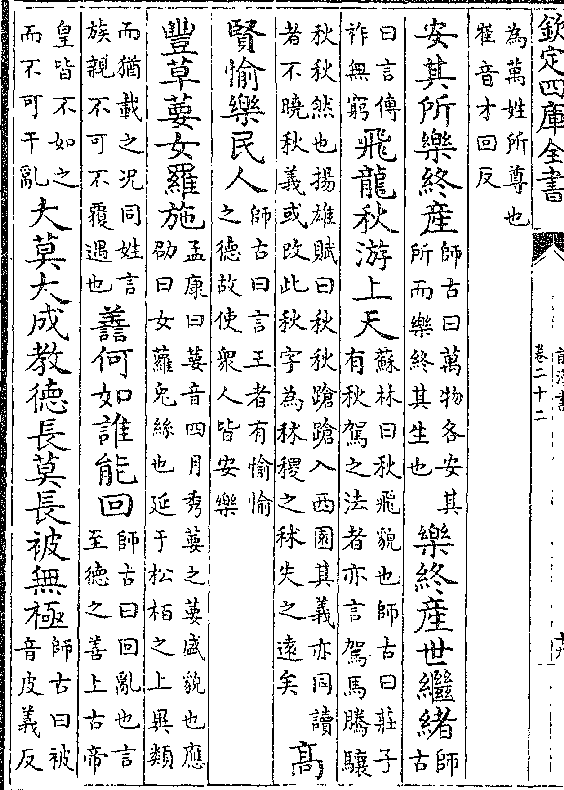 欽定四庫全書
卷二十二
為萬姓所尊也
崔音才回反
安其所樂終産
師古曰萬物各安其
所而樂終其生也
樂終産世繼緒
師
古
曰言傳
祚無窮
飛龍秋游上天
蘇林曰秋飛貌也師古曰莊子
有秋駕之法者亦言駕馬騰驤
秋秋然也揚雄賦曰秋秋蹌蹌入西園其義亦同讀
者不曉秋義或改此秋字為秫稷之秫失之遠矣
高
賢愉樂民人
師古曰言王者有愉愉
之德故使衆人皆安樂
豐草葽女羅施
孟康曰葽音四月秀葽之葽盛貌也應
劭曰女蘿兔絲也延于松柏之上異類
而猶載之况同姓言
族親不可不覆遇也
譱何如誰能回
師古曰回亂也言
至德之善上古帝
皇皆不如之
而不可干亂
大莫大成教德長莫長被無極
師古曰被
音皮義反